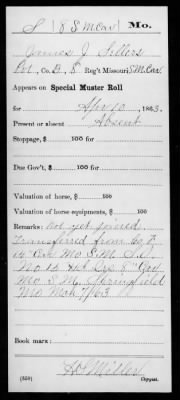 S 18 S M Cav Mo.
James J Sellers
Pvt., Co. B, 8 Reg't Missouri S.M. Cav.
Appears on Special Muster Roll
for Apr 10, 1863.
Present or absent Absent
Stoppage, $ 100 for
Due Gov't, $ 100 for
Valuation of horse, $ 100
Valuation of horse equipments, $ 100
Remarks: not yet joined.
Transferred from Co
Mo S.M.
No 12 Hd Qrs 8" Cav
Mo S.M. Springfield
Mo Mch 7/63
Book mark:
Miller
(359) Copyist.